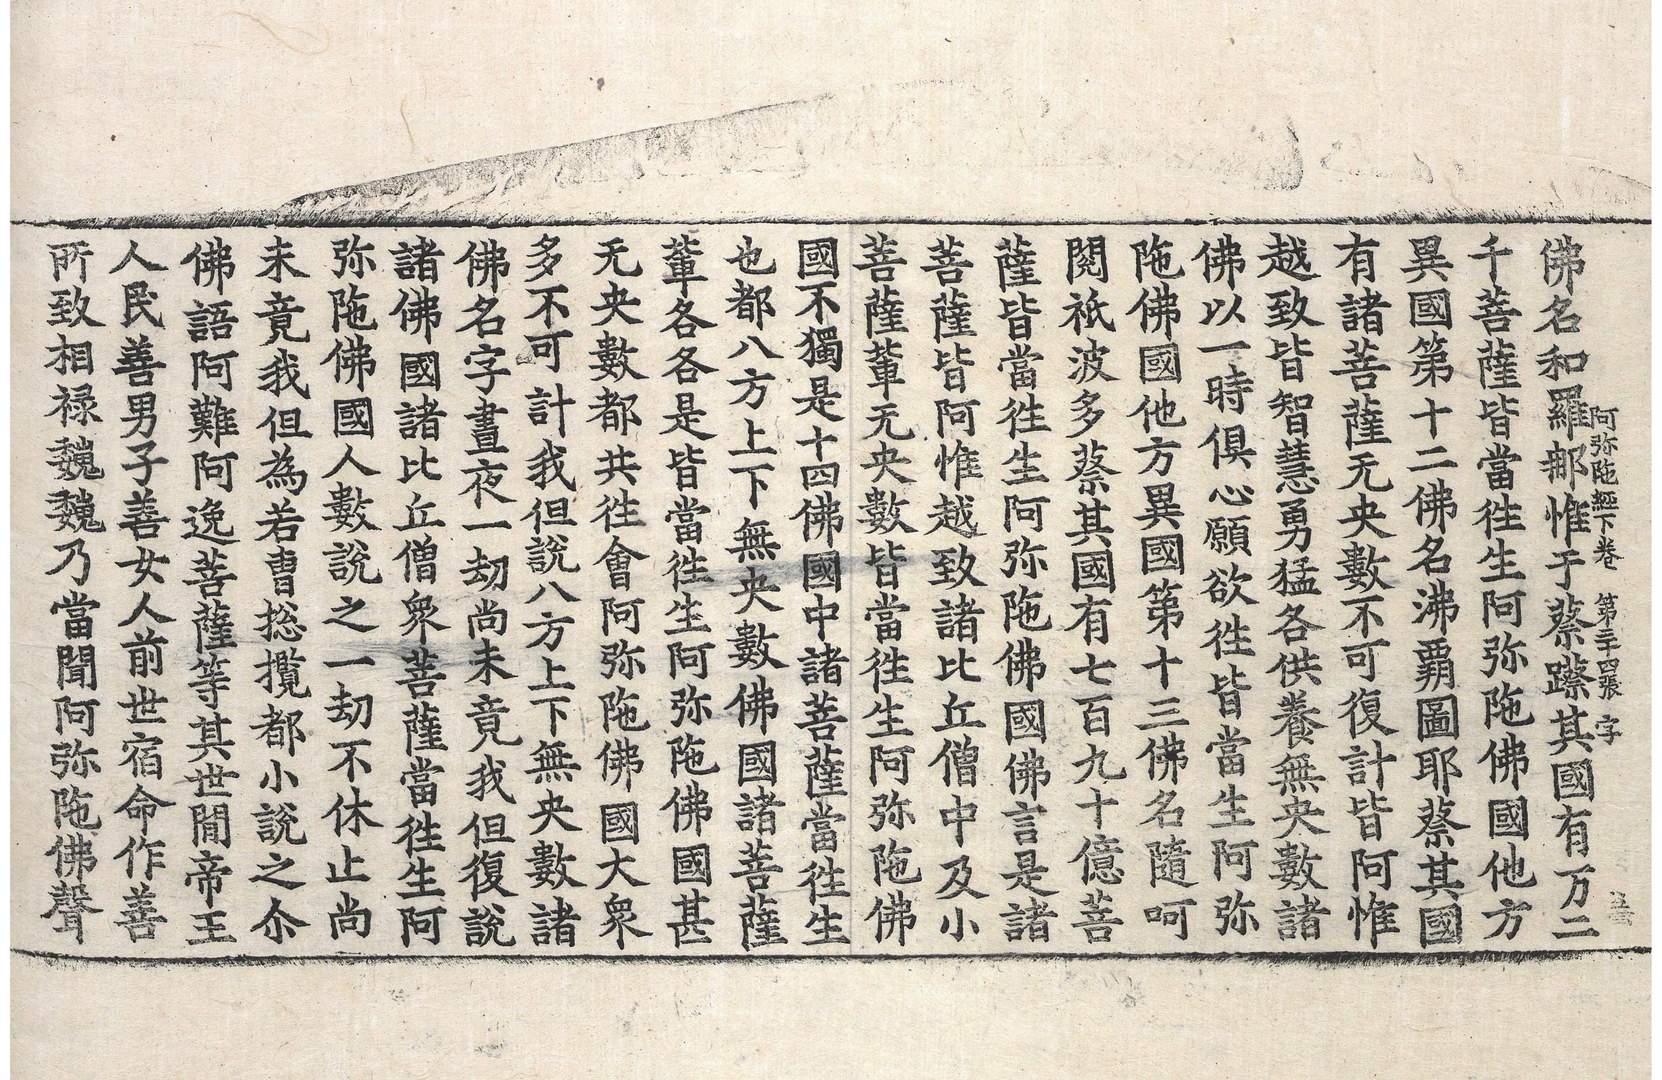 阿弥陁經下卷 第三十四張 字
佛名和羅那惟于蔡䠠其國有万二
千菩薩皆當徃生阿弥陁佛國他方
異國第十二佛名沸覇圖耶蔡其國
有諸菩薩无央數不可復計皆阿惟
越致皆智慧勇猛各供養無央數諸
佛以一時俱心願欲徃皆當生阿弥
陁佛國他方異國第十三佛名隨呵
閱祇波多蔡其國有七百九十億菩
薩皆當徃生阿弥陁佛國佛言是諸
菩薩皆阿惟越致諸比丘僧中及小
菩薩軰无央數皆當徃生阿弥陁佛
國不獨是十四佛國中諸菩薩當徃生
也都八方上下無央數佛國諸菩薩
軰各各是皆當徃生阿弥陁佛國甚
无央數都共徃會阿弥陁佛國大衆
多不可計我但說八方上下無央數諸
佛名字晝夜一劫尚未竟我但復說
諸佛國諸比丘僧衆菩薩當徃生阿
弥陁佛國人數說之一劫不休止尚
未竟我但為若曹揔攬都小說之尒
佛語阿難阿逸菩薩等其世閒帝王
人民善男子善女人前世宿命作善
所致相禄巍巍乃當聞阿弥陁佛聲